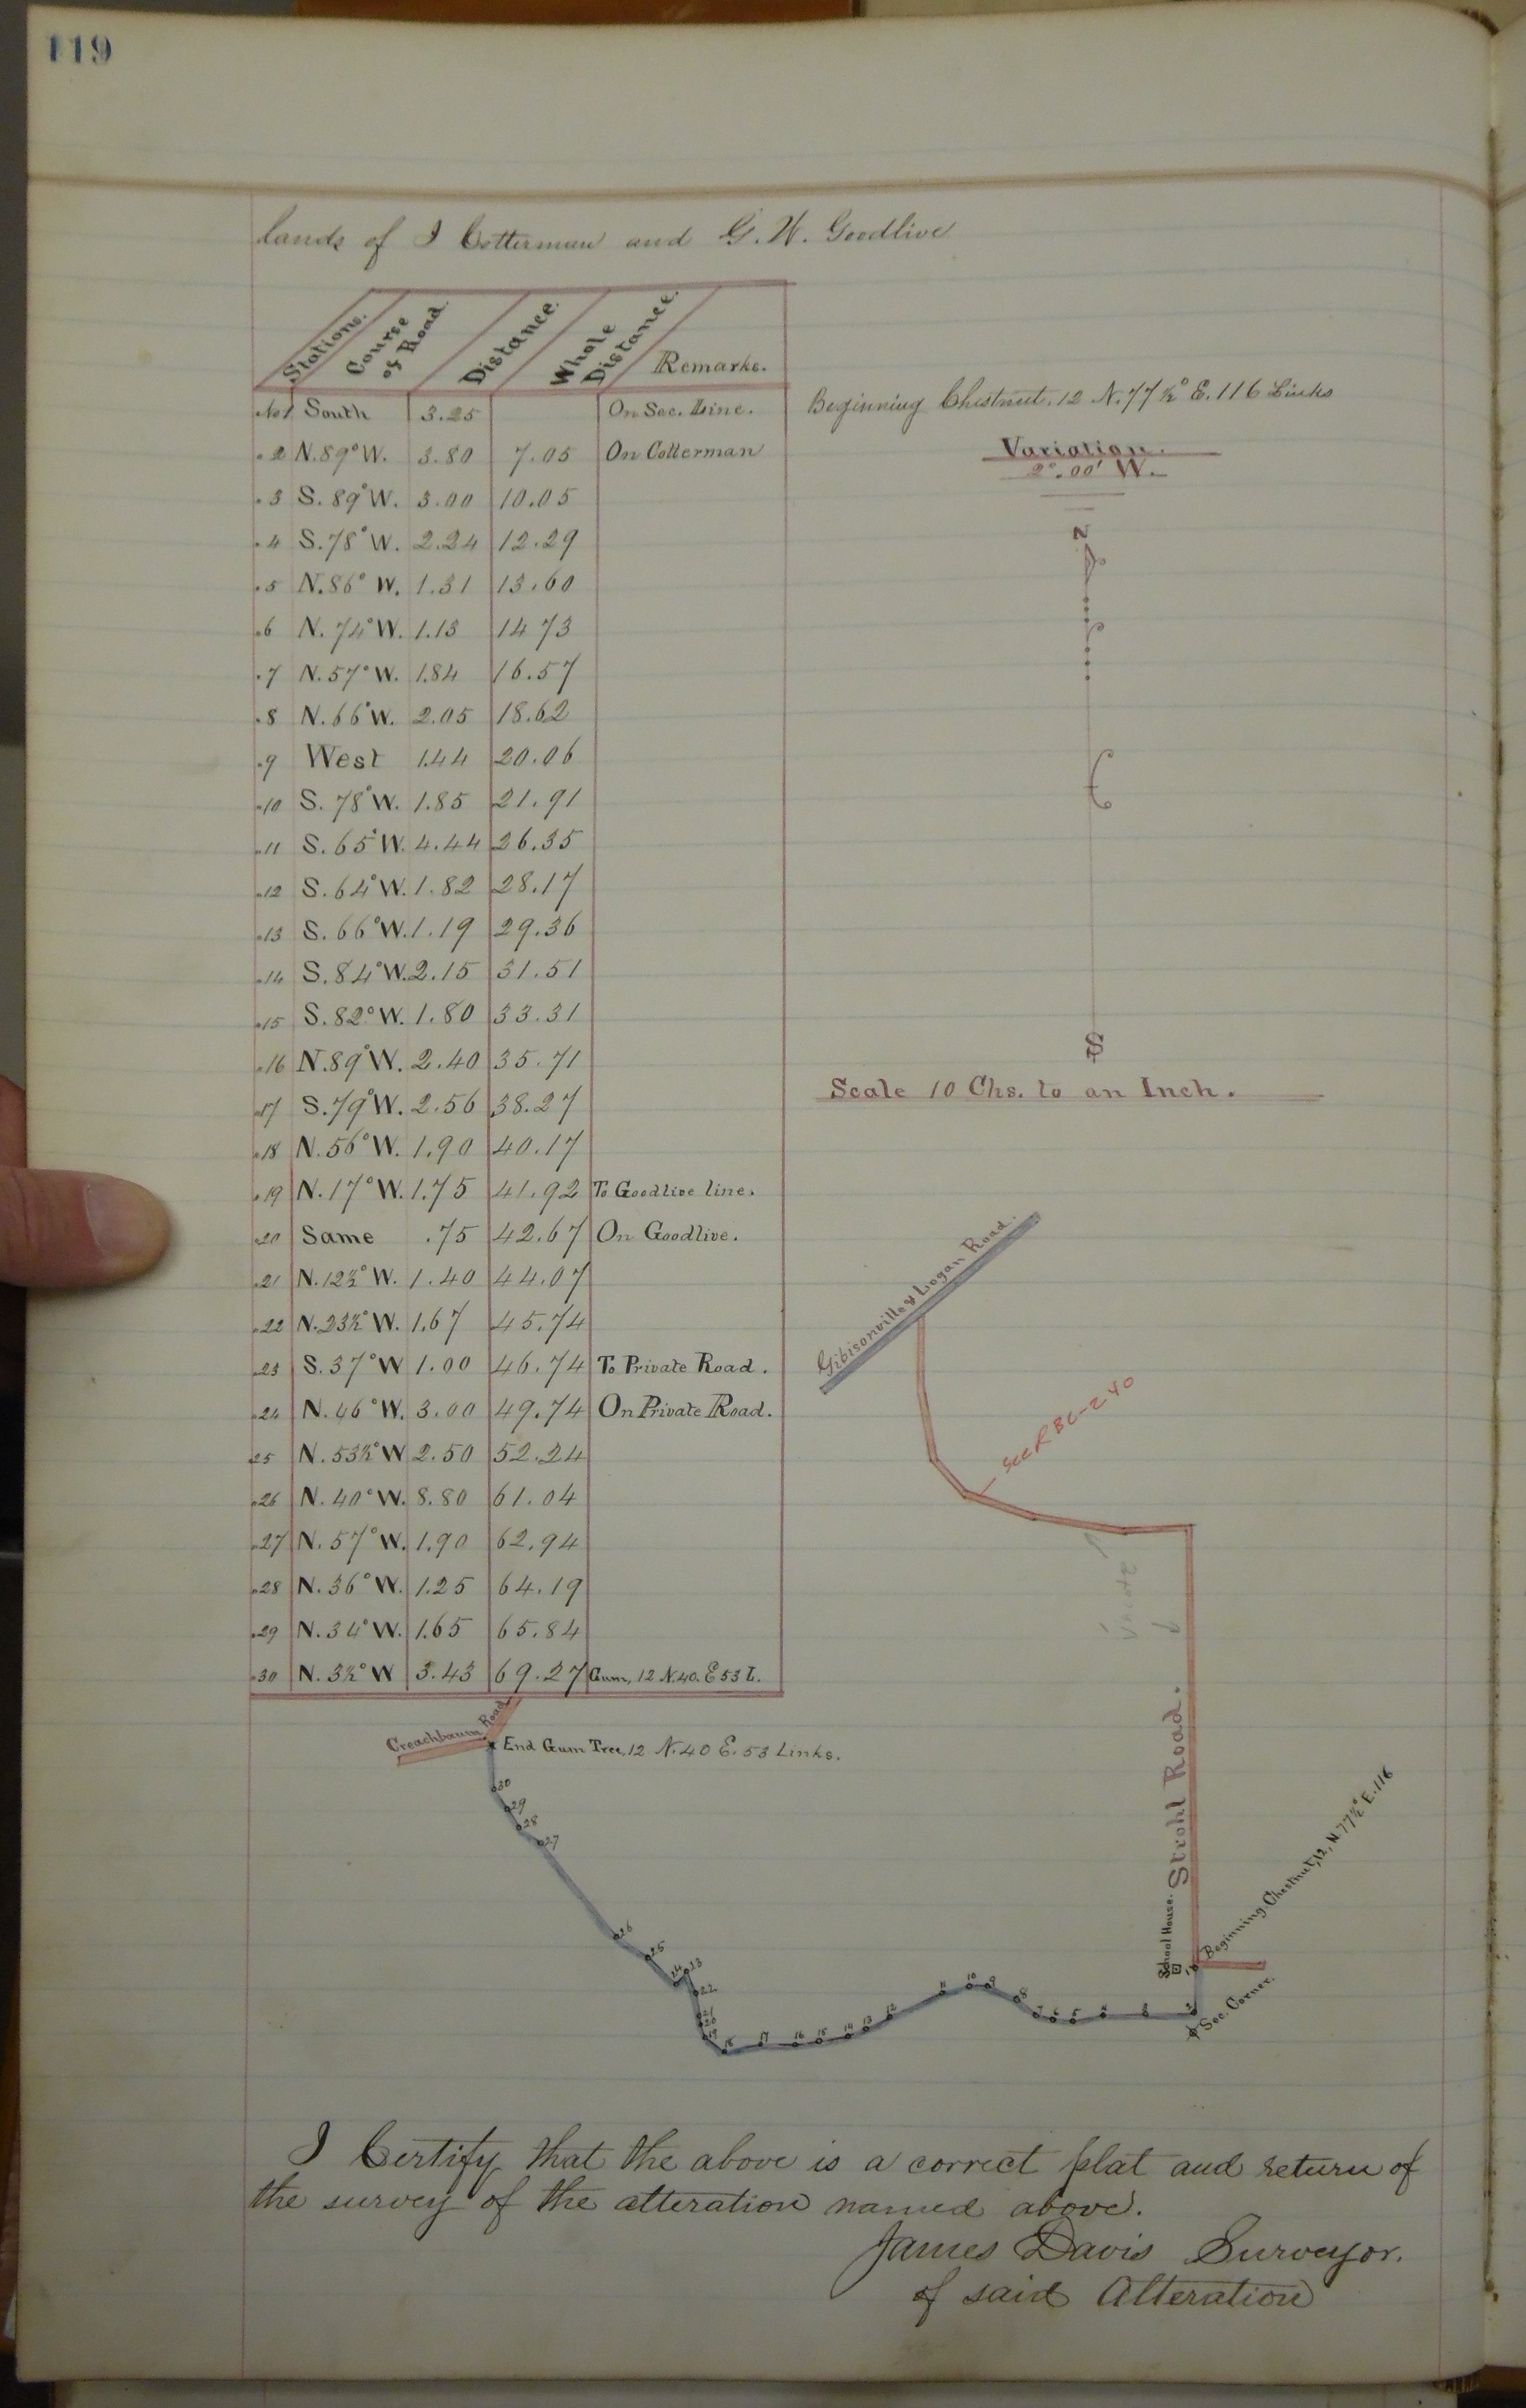 119
lands of I Cotterman and G. W. Goodlive
Stations. Course of Road. Distance. Whole Distance. Remarks.
No 1 South 3.25 On Sec. Line.
" 2 N. 89° W. 3.80 7.05 On Cotterman
" 3 S. 89° W. 3.00 10.05
" 4 S. 78° W. 2.24 12.29
" 5 N. 86° W. 1.31 13.60
" 6 N. 74° W. 1.13 14 73
" 7 N. 57° W. 1.84 16.57
" 8 N. 66° W. 2.05 18.62
" 9 West 1.44 20.06
" 10 S. 78° W. 1.85 21.91
" 11 S. 65° W. 4.44 26.35
" 12 S. 64° W. 1.82 28.17
" 13 S. 66° W. 1.19 29.36
" 14 S. 84° W. 2.15 31.51
" 15 S. 82° W. 1.80 33.31
" 16 N. 89° W. 2.40 35.71
" 17 S. 79° W. 2.56 38.27
" 18 N. 56° W. 1.90 40.17
" 19 N. 17° W. 1.75 41.92 To Goodlive line.
" 20 Same .75 42.67 On Goodlive.
" 21 N. 12½° W. 1.40 44.07
" 22 N. 23½° W. 1.67 45.74
" 23 S. 37° W 1.00 46.74 To Private Road.
" 24 N. 46° W. 3.00 49.74 On Private Road.
25 N. 53½° W 2.50 52.24
" 26 N. 40° W. 8.80 61.04
" 27 N. 57° W. 1.90 62.94
" 28 N. 36° W. 1.25 64.19
" 29 N. 34° W. 1.65 65.84
" 30 N. 3½° W 3.43 69.27 Gum, 12 N. 40. E 53 L.
Beginning Chestnut. 12 N. 77½° E. 116 Links
Variation.
2°.00' W.
N
S
Scale 10 Chs. to an Inch.
Gibisonville & Logan Road.
See R BC-240
Vacate
Strohl Road.
School House.
Beginning Chestnut, 12, N. 77½° E. 116
Sec. Corner.
Creachbaum Road
End Gum Tree, 12 N. 40 E. 53 Links.
30
29
28
27
26
25
24 23
22
21
20
19
18 17 16 15 14 13 12 11 10 9 8 7 6 5 4 3 2
1
I Certify that the above is a correct plat and return of
the survey of the alteration named above.
James Davis Surveyor.
of said Alteration